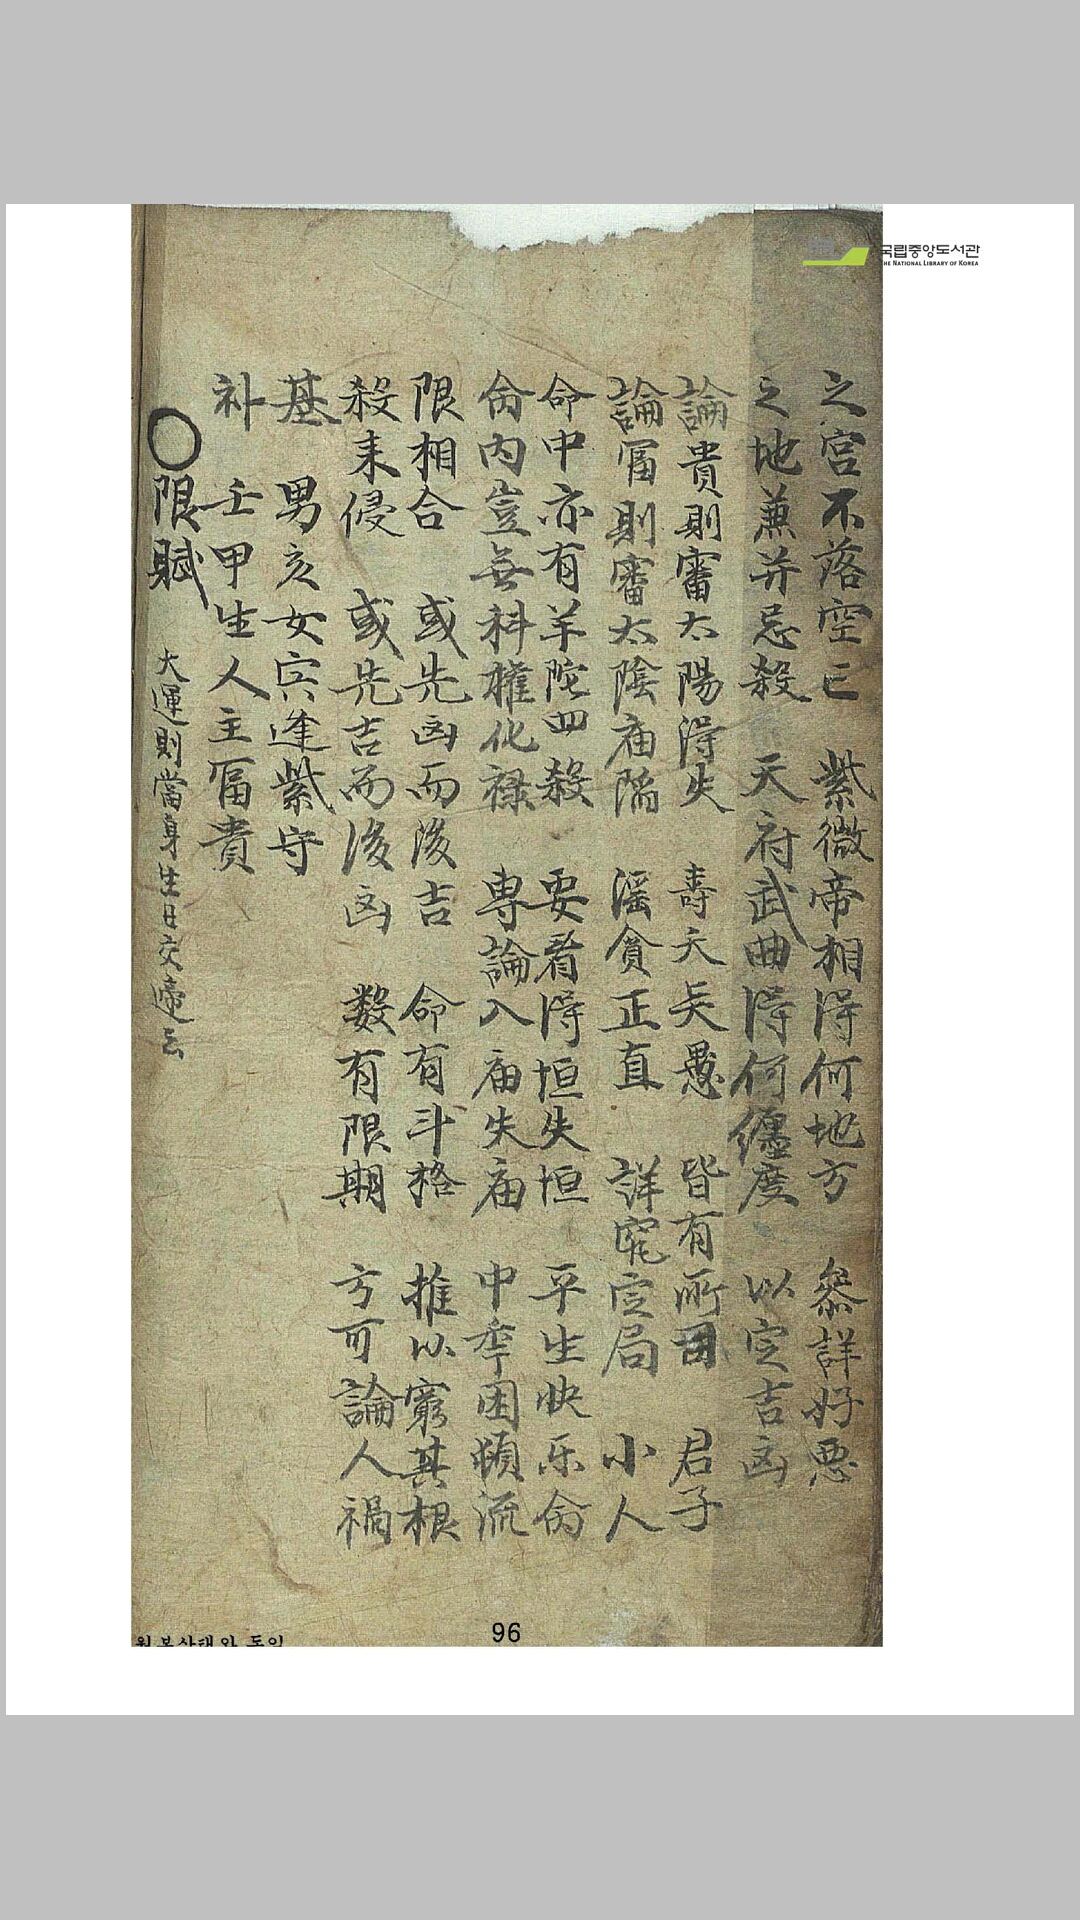 국립중앙도서관
THE NATIONAL LIBRARY OF KOREA
之宮不落空亡 紫微帝相淂何地方 叅詳好悪
之地兼并忌殺 天府武曲淂何纏度 以定吉凶
論貴則審太陽淂失 壽夭矣愚 皆有所因 君子
論富則審太陰庙陷 滛貪正直 詳究定局 小人
命中亦有羊陀四殺 要看淂垣失垣 平生快乐侖
侖内豈無科權化禄 専論入庙失庙 中年困頓流
限相合 或先凶而後吉 命有斗格 推以窮其根
殺来侵 或先吉而後凶 数有限期 方可論人禍
基 男亥女宾逢紫守
补 壬甲生人主富貴
○限賦 大運則當身生日交遞云
96
원본상태와 동일